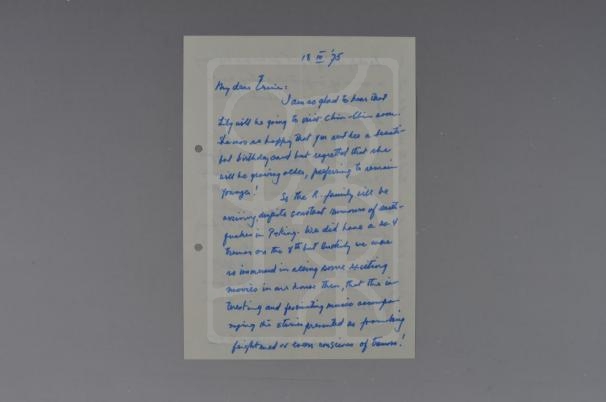 18 III '75
My dear Ernie:
I am so glad to hear that
Lily will be going to visit Chin-Chin soon.
She was so happy that you sent her a beauti-
ful birthday card but regretted that she
will be growing older, preferring to remain
younger! So the R. family will be
arriving despite constant rumours of earth-
quakes in Peking. We did have a
tremor on the 4th but luckily we were
so immersed in seeing some exciting
movies in our house then, that the in-
teresting and fascinating music accompa-
nying the stories prevented us from being
frightened or even conscious of tremors!